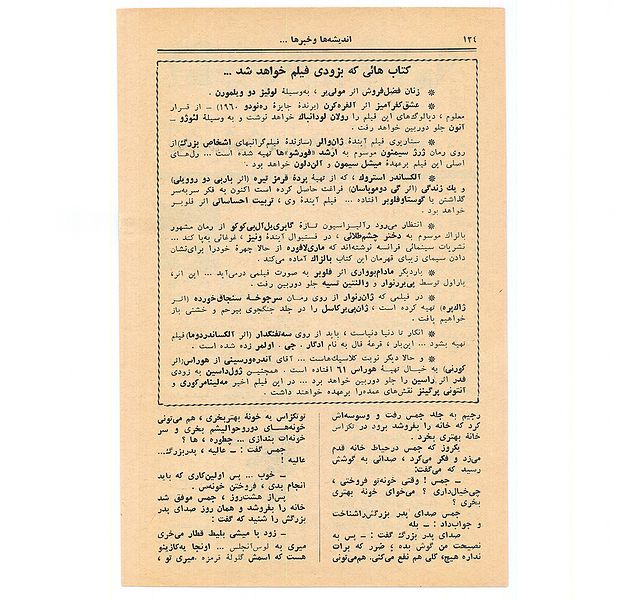 ۱۳٤
اندیشه‌ها وخبرها ...
کتاب هائی که بزودی فیلم خواهد شد ...
❊ زنان فضل‌فروش اثر مولی‌یر ، به‌وسیلهٔ لوئیز دو ویلمورن .
❊ عشق‌کفرآمیز اثر آلفره‌کرن (برندهٔ جایزهٔ ره‌نودو ۱۹٦۰) ــ از قرار
معلوم ، دیالوگ‌های این فیلم را رولان لودانباك خواهد نوشت و به وسیلهٔ لئوژو ــ
آنون جلو دوربین خواهد رفت .
❊ سناریوی فیلم آیندهٔ ژان‌والر (سازندهٔ فیلم‌گرانبهای اشخاص بزرگ)از
روی رمان ژرژ سیمنون موسوم به ارشد «فورشو»ها تهیه شده است ... رل‌های
اصلی این فیلم برعهدهٔ میشل سیمون و آلن‌دلون خواهد بود .
❊ الکساندر استروك ، که از تهیهٔ بردهٔ قرمز تیره (اثر باربی دو رووبلی)
و یك زندگی (اثر گی دوموپاسان) فراغت حاصل کرده است اکنون به فکر سربه‌سر
گذاشتن با گوستاوفلوبر افتاده ... فیلم آیندهٔ وی ، تربیت احساساتی اثر فلوبر
خواهد بود .
❊ انتظار می‌رود رآلیزاسیون تازهٔ گابریل‌آل‌بی‌کوکو از رمان مشهور
بالزاك موسوم به دختر چشم‌طلائی ، در فستیوال آیندهٔ ونیز ، غوغائی به‌پا کند ...
نشریات سینمائی فرانسه نوشته‌اند که ماری‌لافوره از حالا چهرهٔ خودرا برای‌نشان
دادن سیمای زیبای قهرمان این کتاب بالزاك آماده می‌کند .
❊ باردیگر مادام‌بوواری اثر فلوبر به صورت فیلمی درمی‌آید ... این اثر،
باراول توسط پی‌یررنوار و والنتین تسیه جلو دوربین رفت .
❊ در فیلمی که ژان‌رنوار از روی رمان سرجوخهٔ سنجاق‌خورده (اثر
ژاك‌پره) تهیه کرده است ، ژان‌پی‌یرکاسل را در جلد جنگجوی بیرحم و خشنی باز
خواهیم یافت .
❊ انگار تا دنیا دنیاست ، باید از روی سه‌تفنگدار (اثر آلکساندردوما) فیلم
تهیه بشود ... این‌بار ، قرعهٔ فال به نام ادگار . جی . اولمر زده شده است .
❊ و حالا دیگر نوبت کلاسیك‌هاست ... آقای آندره‌ورسینی از هوراس (اثر
کورنی) به خیال تهیهٔ هوراس ٦۱ افتاده است . همچنین ژول‌داسین به زودی
فدر اثر راسین را جلو دوربین خواهد برد ... در این فیلم اخیر مه‌لینامرکوری و
آنتونی پرکینز نقش‌های عمده‌را برعهده خواهند داشت .
رحیم به جلد جمس رفت و وسوسه‌اش
کرد که خانه را بفروشد برود در تگزاس
خانهٔ بهتری بخرد .
یکروز که جمس درحیاط خانه قدم
می‌زد و فکر می‌کرد ، صدائی به گوشش
رسید که می‌گفت:
ــ جمس ! وقتی خونه‌تو فروختی ،
چی‌خیال‌داری ؟ می‌خوای خونهٔ بهتری
بخری ؟
جمس صدای پدر بزرگش‌راشناخت
و جواب‌داد : ــ بله
صدای پدر بزرگ گفت : ــ پس یه
نصیحت من گوش بده ؛ ضرر که برات
نداره هیچ، گلی هم نفع می‌کنی. هم‌می‌تونی
توتگزاس یه خونهٔ بهتربخری ، هم می‌تونی
خونه‌های دوروحوالیشم بخری و سر
خونه‌ات بندازی ... چطوره ، ها ؟
جمس گفت : ــ عالیه ، پدربزرگ...
عالیه !
ــ خوب ... پس اولین‌کاری که باید
انجام بدی ، فروختن خونه‌س .
پس‌از هشت‌روز ، جمس موفق شد
خانه را بفروشد و همان روز صدای پدر
بزرگش را شنید که گفت :
ــ زود با میشی بلیط قطار می‌خری
میری به لوس‌انجلس ... اونجا یه‌کازینو
هست که اسمش گلولهٔ قرمزه .میری تو ،